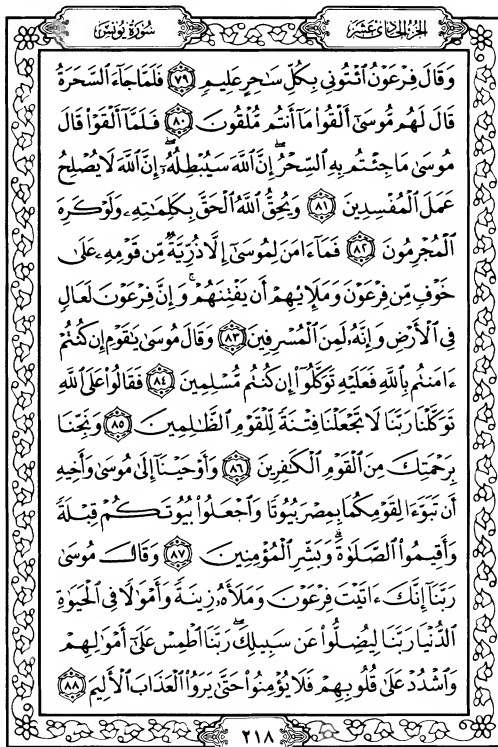 سُورَةُ يُونُسَ
الجُزْءُ الحَادِي عَشَرَ
وَقَالَ فِرْعَوْنُ ٱئْتُونِى بِكُلِّ سَٰحِرٍ عَلِيمٍ ٧٩ فَلَمَّا جَآءَ ٱلسَّحَرَةُ
قَالَ لَهُم مُّوسَىٰٓ أَلْقُوا۟ مَآ أَنتُم مُّلْقُونَ ٨٠ فَلَمَّآ أَلْقَوْا۟ قَالَ
مُوسَىٰ مَا جِئْتُم بِهِ ٱلسِّحْرُ إِنَّ ٱللَّهَ سَيُبْطِلُهُۥٓ إِنَّ ٱللَّهَ لَا يُصْلِحُ
عَمَلَ ٱلْمُفْسِدِينَ ٨١ وَيُحِقُّ ٱللَّهُ ٱلْحَقَّ بِكَلِمَٰتِهِۦ وَلَوْ كَرِهَ
ٱلْمُجْرِمُونَ ٨٢ فَمَآ ءَامَنَ لِمُوسَىٰٓ إِلَّا ذُرِّيَّةٌ مِّن قَوْمِهِۦ عَلَىٰ
خَوْفٍ مِّن فِرْعَوْنَ وَمَلَإِي۟هِمْ أَن يَفْتِنَهُمْ ۚ وَإِنَّ فِرْعَوْنَ لَعَالٍ
فِى ٱلْأَرْضِ وَإِنَّهُۥ لَمِنَ ٱلْمُسْرِفِينَ ٨٣ وَقَالَ مُوسَىٰ يَٰقَوْمِ إِن كُنتُمْ
ءَامَنتُم بِٱللَّهِ فَعَلَيْهِ تَوَكَّلُوٓا۟ إِن كُنتُم مُّسْلِمِينَ ٨٤ فَقَالُوا۟ عَلَى ٱللَّهِ
تَوَكَّلْنَا رَبَّنَا لَا تَجْعَلْنَا فِتْنَةً لِّلْقَوْمِ ٱلظَّٰلِمِينَ ٨٥ وَنَجِّنَا
بِرَحْمَتِكَ مِنَ ٱلْقَوْمِ ٱلْكَٰفِرِينَ ٨٦ وَأَوْحَيْنَآ إِلَىٰ مُوسَىٰ وَأَخِيهِ
أَن تَبَوَّءَا لِقَوْمِكُمَا بِمِصْرَ بُيُوتًا وَٱجْعَلُوا۟ بُيُوتَكُمْ قِبْلَةً
وَأَقِيمُوا۟ ٱلصَّلَوٰةَ ۗ وَبَشِّرِ ٱلْمُؤْمِنِينَ ٨٧ وَقَالَ مُوسَىٰ
رَبَّنَآ إِنَّكَ ءَاتَيْتَ فِرْعَوْنَ وَمَلَأَهُۥ زِينَةً وَأَمْوَٰلًا فِى ٱلْحَيَوٰةِ
ٱلدُّنْيَا رَبَّنَا لِيُضِلُّوا۟ عَن سَبِيلِكَ ۖ رَبَّنَا ٱطْمِسْ عَلَىٰٓ أَمْوَٰلِهِمْ
وَٱشْدُدْ عَلَىٰ قُلُوبِهِمْ فَلَا يُؤْمِنُوا۟ حَتَّىٰ يَرَوُا۟ ٱلْعَذَابَ ٱلْأَلِيمَ ٨٨
٢١٨